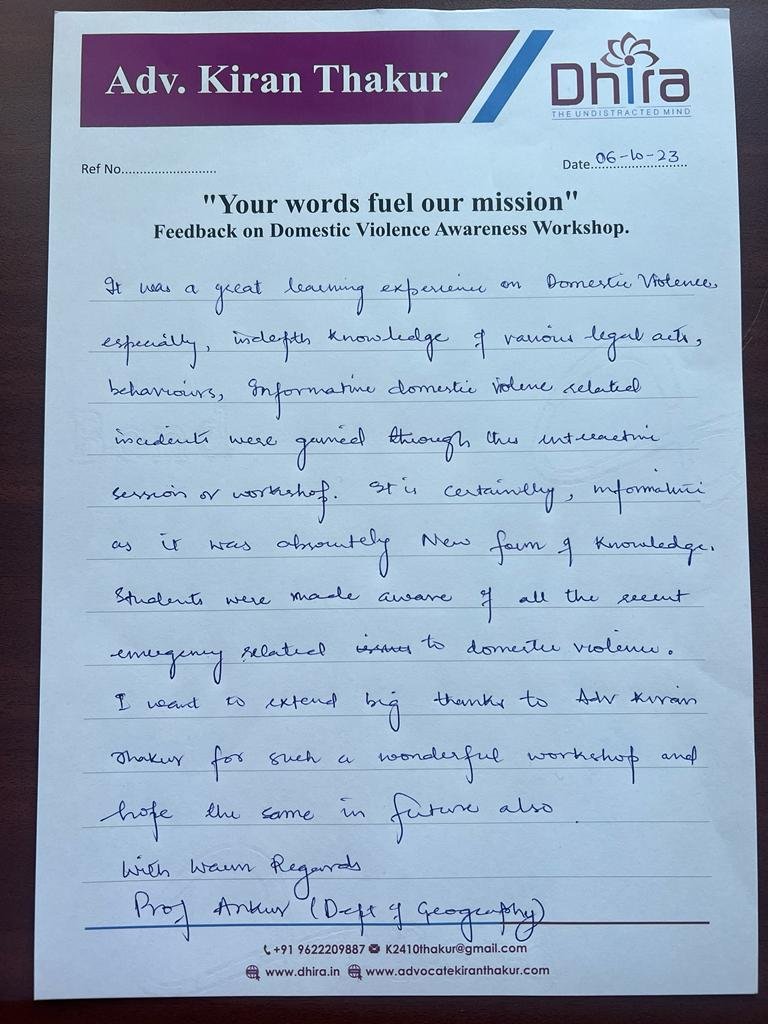 Adv. Kiran Thakur
Dhira
THE UNDISTRACTED MIND
Ref No..........................
Date 06-10-23
"Your words fuel our mission"
Feedback on Domestic Violence Awareness Workshop.
It was a great learning experience on Domestic Violence,
especially, indepth knowledge of various legal acts,
behaviours, Informative domestic violene related
incidents were gained through this interactive
session or workshop. It is certainlly, informative
as it was absolutely New form of knowledge.
Students were made aware of all the recent
emergency related issues to domestic violence.
I want to extend big thanks to Adv Kiran
Thakur for such a wonderful workshop and
hope the same in future also.
With Warm Regards
Prof Ankur (Dept of Geography)
+91 9622209887 K2410thakur@gmail.com
www.dhira.in www.advocatekiranthakur.com